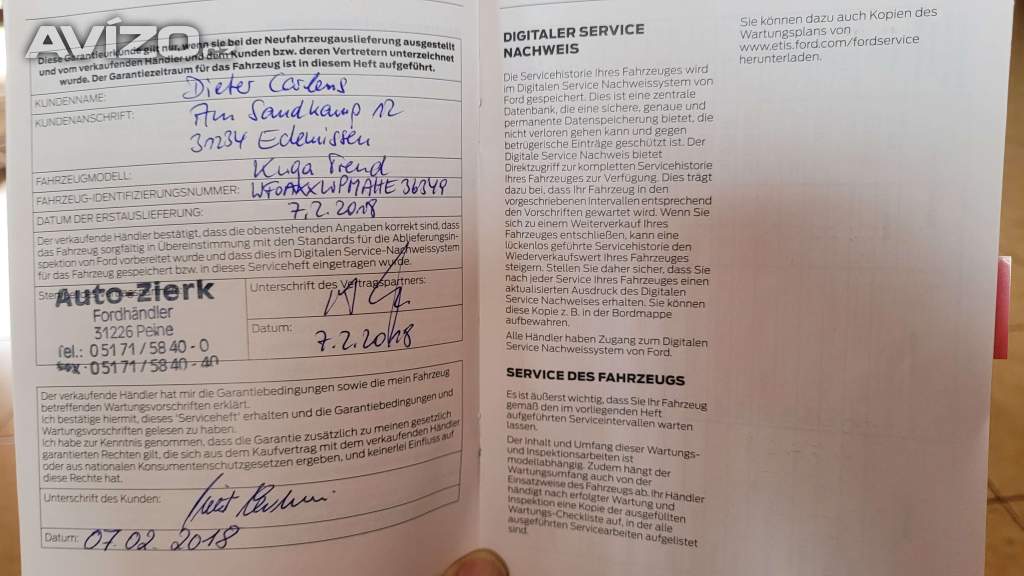 Avízo.cz
Diese Garantieurkunde gilt nur, wenn sie bei der Neufahrzeugauslieferung ausgestellt
und vom verkaufenden Händler und dem Kunden bzw. deren Vertretern unterzeichnet
wurde. Der Garantiezeitraum für das Fahrzeug ist in diesem Heft aufgeführt.
KUNDENNAME: Dieter Carlens
KUNDENANSCHRIFT: Am Sandkamp 12
31234 Edemissen
FAHRZEUGMODELL: Kuga Trend
FAHRZEUG-IDENTIFIZIERUNGSNUMMER: WF0AXXWPMAHE36349
DATUM DER ERSTAUSLIEFERUNG: 7.2.2018
Der verkaufende Händler bestätigt, dass die obenstehenden Angaben korrekt sind, dass
das Fahrzeug sorgfältig in Übereinstimmung mit den Standards für die Ablieferungsin-
spektion von Ford vorbereitet wurde und dass dies im Digitalen Service-Nachweissystem
für das Fahrzeug gespeichert bzw. in dieses Serviceheft eingetragen wurde.
Auto-Zierk
Fordhändler
31226 Peine
Tel.: 0 51 71 / 58 40 - 0
Fax - 0 51 71 / 58 40 - 40
Unterschrift des Vertragspartners:
Datum: 7.2.2018
Der verkaufende Händler hat mir die Garantiebedingungen sowie die mein Fahrzeug
betreffenden Wartungsvorschriften erklärt.
Ich bestätige hiermit, dieses 'Serviceheft' erhalten und die Garantiebedingungen und
Wartungsvorschriften gelesen zu haben.
Ich habe zur Kenntnis genommen, dass die Garantie zusätzlich zu meinen gesetzlich
garantierten Rechten gilt, die sich aus dem Kaufvertrag mit dem verkaufenden Händler
oder aus nationalen Konsumentenschutzgesetzen ergeben, und keinerlei Einfluss auf
diese Rechte hat.
Unterschrift des Kunden:
Datum: 07.02.2018
DIGITALER SERVICE
NACHWEIS
Die Servicehistorie Ihres Fahrzeuges wird
im Digitalen Service Nachweissystem von
Ford gespeichert. Dies ist eine zentrale
Datenbank, die eine sichere, genaue und
permanente Datenspeicherung bietet, die
nicht verloren gehen kann und gegen
betrügerische Einträge geschützt ist. Der
Digitale Service Nachweis bietet
Direktzugriff zur kompletten Servicehistorie
Ihres Fahrzeuges zur Verfügung. Dies trägt
dazu bei, dass Ihr Fahrzeug in den
vorgeschriebenen Intervallen entsprechend
den Vorschriften gewartet wird. Wenn Sie
sich zu einem Weiterverkauf Ihres
Fahrzeuges entschließen, kann eine
lückenlos geführte Servicehistorie den
Wiederverkaufswert Ihres Fahrzeuges
steigern. Stellen Sie daher sicher, dass Sie
nach jeder Service Ihres Fahrzeuges einen
aktualisierten Ausdruck des Digitalen
Service Nachweises erhalten. Sie können
diese Kopie z. B. in der Bordmappe
aufbewahren.
Alle Händler haben Zugang zum Digitalen
Service Nachweissystem von Ford.
SERVICE DES FAHRZEUGS
Es ist äußerst wichtig, dass Sie Ihr Fahrzeug
gemäß den im vorliegenden Heft
aufgeführten Serviceintervallen warten
lassen.
Der Inhalt und Umfang dieser Wartungs-
und Inspektionsarbeiten ist
modellabhängig. Zudem hängt der
Wartungsumfang auch von der
Einsatzweise des Fahrzeugs ab. Ihr Händler
händigt nach erfolgter Wartung und
Inspektion eine Kopie der ausgefüllten
Wartungs-Checkliste auf, in der alle
ausgeführten Servicearbeiten aufgelistet
sind.
Sie können dazu auch Kopien des
Wartungsplans von
www.etis.ford.com/fordservice
herunterladen.